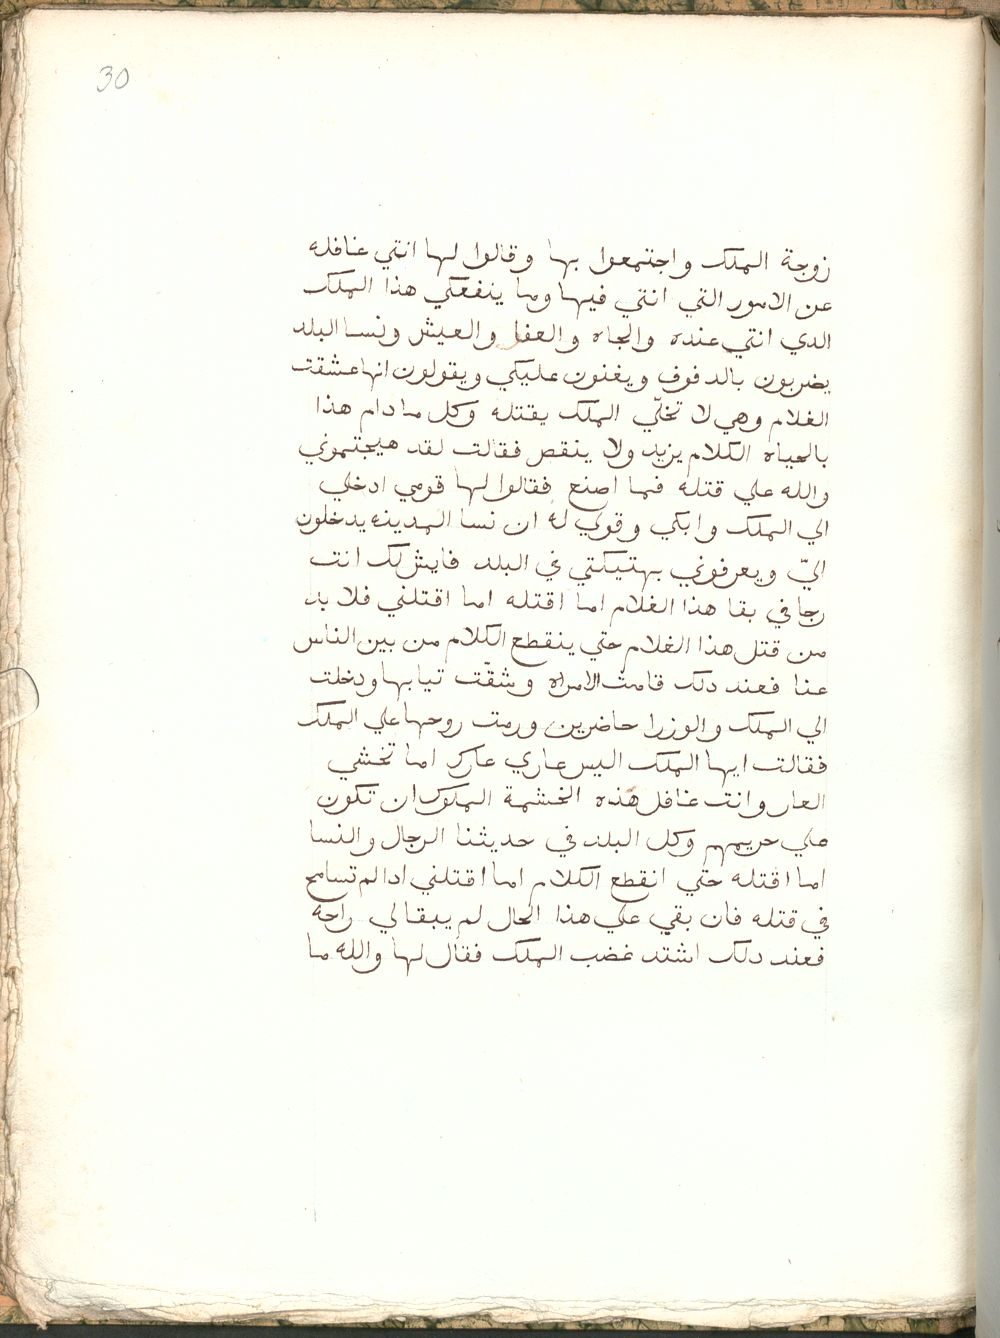 30
زوجة الملك واجتمعوا بها وقالوا لها انتي غافله
عن الامور التي انتي فيها وما ينفعكي هذا الملك
الدي انتي عنده والجاه والعقل والعيش ونسا البلد
يضربون بالدفوف ويغنون عليكي ويقولون انها عشقت
الغلام وهي لا تخلّي الملك يقتله وكل ما دام هذا
بالحياه الكلام يزيد ولا ينقص فقالت لقد هيجتموني
والله علي قتله فما اصنع فقالوا لها قومي ادخلي
الي الملك وابكي وقولي له ان نسا المدينه يدخلون
اليّ ويعرفوني بهتيكتي في البلد فايش لك انت
رجا في بقا هذا الغلام اما اقتله اما اقتلني فلا بد
من قتل هذا الغلام حتي ينقطع الكلام من بين الناس
عنا فعند دلك قامت الامراه وشقّت تيابها ودخلت
الي الملك والوزرا حاضرين ورمت روحها علي الملك
فقالت ايها الملك اليس عاري عارك اما تخشي
العار وانت غافل هذه الخشمة الملوك ان تكون
علي حريمهم وكل البلد في حديثنا الرجال والنسا
اما اقتله حتي انقطع الكلام اما اقتلني ادا لم تسامح
في قتله فان بقي علي هذا الحال لم يبقا لي راحه
فعند دلك اشتد غضب الملك فقال لها والله ما